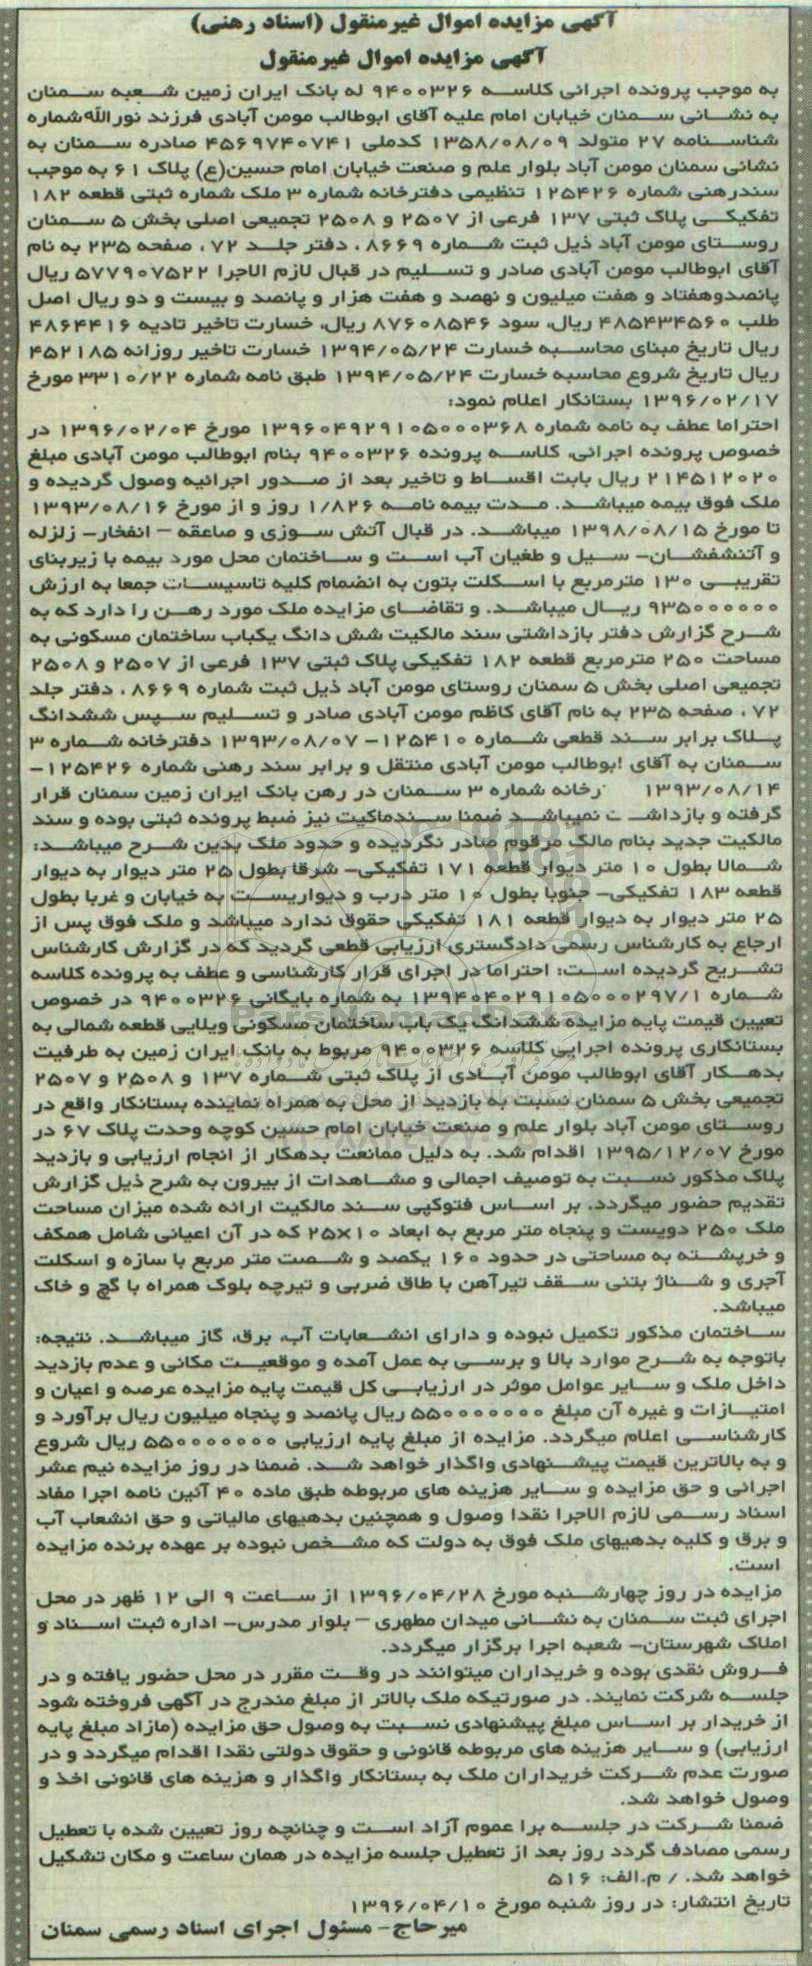 آگهی مزایده اموال غیرمنقول (اسناد رهنی)
آگهی مزایده اموال غیرمنقول
به موجب پرونده اجرائی کلاسه ۹۴۰۰۳۲۶ له بانک ایران زمین شعبه سمنان
به نشانی سمنان خیابان امام علیه آقای ابوطالب مومن آبادی فرزند نورالله شماره
شناسنامه ۲۷ متولد ۱۳۵۸/۰۸/۰۹ کدملی ۴۵۶۹۷۴۰۷۴۱ صادره سمنان به
نشانی سمنان مومن آباد بلوار علم و صنعت خیابان امام حسین(ع) پلاک ۶۱ به موجب
سندرهنی شماره ۱۲۵۴۲۶ تنظیمی دفترخانه شماره ۳ ملک شماره ثبتی قطعه ۱۸۲
تفکیکی پلاک ثبتی ۱۳۷ فرعی از ۲۵۰۷ و ۲۵۰۸ تجمیعی اصلی بخش ۵ سمنان
روستای مومن آباد ذیل ثبت شماره ۸۶۶۹ ، دفتر جلد ۷۲ ، صفحه ۲۳۵ به نام
آقای ابوطالب مومن آبادی صادر و تسلیم در قبال لازم الاجرا ۵۷۷۹۰۷۵۲۲ ریال
پانصدوهفتاد و هفت میلیون و نهصد و هفت هزار و پانصد و بیست و دو ریال اصل
طلب ۴۸۵۴۳۴۵۶۰ ریال، سود ۸۷۶۰۸۵۴۶ ریال، خسارت تاخیر تادیه ۴۸۶۴۴۱۶
ریال تاریخ مبنای محاسبه خسارت ۱۳۹۴/۰۵/۲۴ خسارت تاخیر روزانه ۴۵۲۱۸۵
ریال تاریخ شروع محاسبه خسارت ۱۳۹۴/۰۵/۲۴ طبق نامه شماره ۳۳۱۰/۲۲ مورخ
۱۳۹۶/۰۲/۱۷ بستانکار اعلام نمود:
احتراما عطف به نامه شماره ۱۳۹۶۰۴۹۲۹۱۰۵۰۰۰۳۶۸ مورخ ۱۳۹۶/۰۲/۰۴ در
خصوص پرونده اجرائی، کلاسه پرونده ۹۴۰۰۳۲۶ بنام ابوطالب مومن آبادی مبلغ
۲۱۴۵۱۲۰۲۰ ریال بابت اقساط و تاخیر بعد از صدور اجرائیه وصول گردیده و
ملک فوق بیمه میباشد. مدت بیمه نامه ۱/۸۲۶ روز و از مورخ ۱۳۹۳/۰۸/۱۶
تا مورخ ۱۳۹۸/۰۸/۱۵ میباشد. در قبال آتش سوزی و صاعقه – انفخار- زلزله
و آتنشفشان- سیل و طغیان آب است و ساختمان محل مورد بیمه با زیربنای
تقریبی ۱۳۰ مترمربع با اسکلت بتون به انضمام کلیه تاسیسات جمعا به ارزش
۹۳۵۰۰۰۰۰۰ ریال میباشد. و تقاضای مزایده ملک مورد رهن را دارد که به
شرح گزارش دفتر بازداشتی سند مالکیت شش دانگ یکباب ساختمان مسکونی به
مساحت ۲۵۰ مترمربع قطعه ۱۸۲ تفکیکی پلاک ثبتی ۱۳۷ فرعی از ۲۵۰۷ و ۲۵۰۸
تجمیعی اصلی بخش ۵ سمنان روستای مومن آباد ذیل ثبت شماره ۸۶۶۹ ، دفتر جلد
۷۲ ، صفحه ۲۳۵ به نام آقای کاظم مومن آبادی صادر و تسلیم سپس ششدانگ
پلاک برابر سند قطعی شماره ۱۲۵۴۱۰- ۱۳۹۳/۰۸/۰۷ دفترخانه شماره ۳
سمنان به آقای ابوطالب مومن آبادی منتقل و برابر سند رهنی شماره ۱۲۵۴۲۶-
۱۳۹۳/۰۸/۱۴ رخانه شماره ۳ سمنان در رهن بانک ایران زمین سمنان قرار
گرفته و بازداشت نمیباشد ضمنا سندماکیت نیز ضبط پرونده ثبتی بوده و سند
مالکیت جدید بنام مالک مرقوم صادر نگردیده و حدود ملک بدین شرح میباشد:
شمالا بطول ۱۰ متر دیوار قطعه ۱۷۱ تفکیکی- شرقا بطول ۲۵ متر دیوار به دیوار
قطعه ۱۸۳ تفکیکی- جنوبا بطول ۱۰ متر درب و دیواریست به خیابان و غربا بطول
۲۵ متر دیوار به دیوار قطعه ۱۸۱ تفکیکی حقوق ندارد میباشد و ملک فوق پس از
ارجاع به کارشناس رسمی دادگستری ارزیابی قطعی گردید که در گزارش کارشناس
تشریح گردیده است: احتراما در اجرای قرار کارشناسی و عطف به پرونده کلاسه
شماره ۱۳۹۴۰۴۰۲۹۱۰۵۰۰۰۲۹۷/۱ به شماره بایگانی ۹۴۰۰۳۲۶ در خصوص
تعیین قیمت پایه مزایده ششدانگ یک باب ساختمان مسکونی ویلایی قطعه شمالی به
بستانکاری پرونده اجرایی کلاسه ۹۴۰۰۳۲۶ مربوط به بانک ایران زمین به طرفیت
بدهکار آقای ابوطالب مومن آبادی از پلاک ثبتی شماره ۱۳۷ و ۲۵۰۸ و ۲۵۰۷
تجمیعی بخش ۵ سمنان نسبت به بازدید از محل به همراه نماینده بستانکار واقع در
روستای مومن آباد بلوار علم و صنعت خیابان امام حسین کوچه وحدت پلاک ۶۷ در
مورخ ۱۳۹۵/۱۲/۰۷ اقدام شد. به دلیل ممانعت بدهکار از انجام ارزیابی و بازدید
پلاک مذکور نسبت به توصیف اجمالی و مشاهدات از بیرون به شرح ذیل گزارش
تقدیم حضور میگردد. بر اساس فتوکپی سند مالکیت ارائه شده میزان مساحت
ملک ۲۵۰ دویست و پنجاه متر مربع به ابعاد ۱۰×۲۵ که در آن اعیانی شامل همکف
و خرپشته به مساحتی در حدود ۱۶۰ یکصد و شصت متر مربع با سازه و اسکلت
آجری و شناژ بتنی سقف تیرآهن با طاق ضربی و تیرچه بلوک همراه با گچ و خاک
میباشد.
ساختمان مذکور تکمیل نبوده و دارای انشعابات آب، برق، گاز میباشد. نتیجه:
باتوجه به شرح موارد بالا و برسی به عمل آمده و موقعیت مکانی و عدم بازدید
داخل ملک و سایر عوامل موثر در ارزیابی کل قیمت پایه مزایده عرصه و اعیان و
امتیازات و غیره آن مبلغ ۵۵۰۰۰۰۰۰۰ ریال پانصد و پنجاه میلیون ریال برآورد و
کارشناسی اعلام میگردد. مزایده از مبلغ پایه ارزیابی ۵۵۰۰۰۰۰۰۰ ریال شروع
و به بالاترین قیمت پیشنهادی واگذار خواهد شد. ضمنا در روز مزایده نیم عشر
اجرائی و حق مزایده و سایر هزینه های مربوطه طبق ماده ۴۰ آئین نامه اجرا مفاد
اسناد رسمی لازم الاجرا نقدا وصول و همچنین بدهیهای مالیاتی و حق انشعاب آب
و برق و کلیه بدهیهای ملک فوق به دولت که مشخص نبوده بر عهده برنده مزایده
است.
مزایده در روز چهارشنبه مورخ ۱۳۹۶/۰۴/۲۸ از ساعت ۹ الی ۱۲ ظهر در محل
اجرای ثبت سمنان به نشانی میدان مطهری – بلوار مدرس- اداره ثبت اسناد و
املاک شهرستان- شعبه اجرا برگزار میگردد.
فروش نقدی بوده و خریداران میتوانند در وقت مقرر در محل حضور یافته و در
جلسه شرکت نمایند. در صورتیکه ملک بالاتر از مبلغ مندرج در آگهی فروخته شود
از خریدار بر اساس مبلغ پیشنهادی نسبت به وصول حق مزایده (مازاد مبلغ پایه
ارزیابی) و سایر هزینه های مربوطه قانونی و حقوق دولتی نقدا اقدام میگردد و در
صورت عدم شرکت خریداران ملک به بستانکار واگذار و هزینه های قانونی اخذ و
وصول خواهد شد.
ضمنا شرکت در جلسه برا عموم آزاد است و چنانچه روز تعیین شده با تعطیل
رسمی مصادف گردد روز بعد از تعطیل جلسه مزایده در همان ساعت و مکان تشکیل
خواهد شد. / م.الف: ۵۱۶
تاریخ انتشار: در روز شنبه مورخ ۱۳۹۶/۰۴/۱۰
میرحاج- مسئول اجرای اسناد رسمی سمنان
ParsNamadData